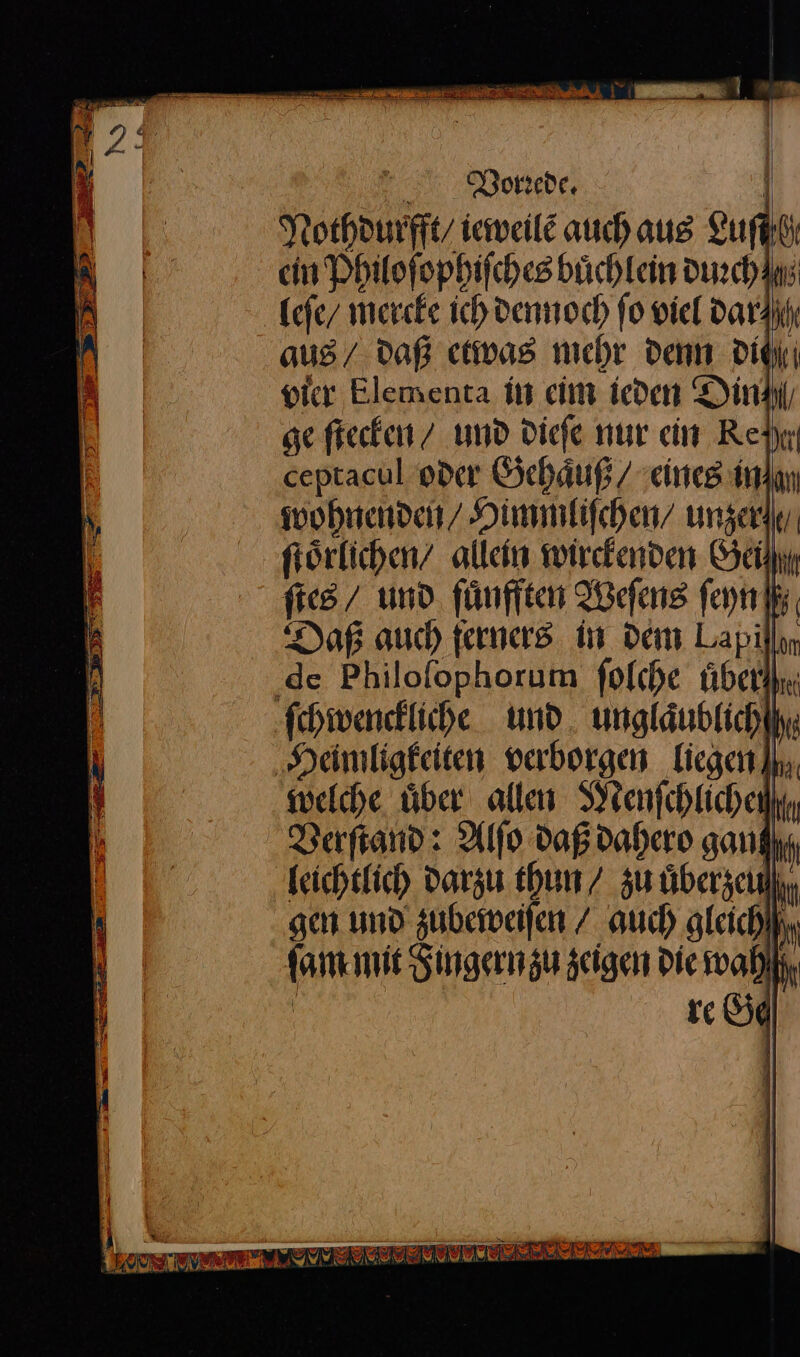 2
Vorꝛede.
Nothdurfft/ ieweilẽ auch aus Luſt
ein Philoſophiſches bůchlein duꝛch⸗
leſe/ mercke ich dennoch ſo viel dar⸗
aus / daß etwas mehr denn die
vier Elementa in eim ieden Din⸗
ge ſtecken / und dieſe nur ein Re⸗
ceptacul oder Gehåuß / eines in⸗
wohnenden / Himmliſchen/ unzer⸗
ſtőrlichen/ allein wirckenden Gei⸗
ſtes / und fůnfften Weſens ſeyn
Daß auch ferners in dem Lapi
de Philoſophorum ſolche ůber
ſchwenckliche und unglåublich
Heimligkeiten verborgen liegen
welche ůber allen Menſchliche
Verſtand : Alſo daß dahero gan
leichtlich darzu thun / zu ůberzeu
gen und zubeweiſen / auch gleich
ſam mit Fingern zu zeigen die wah
re Ge